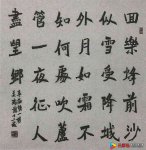 回樂烽前沙
似雪受降城
外月如霜不
知何處吹蘆
管一夜征人
盡望鄉